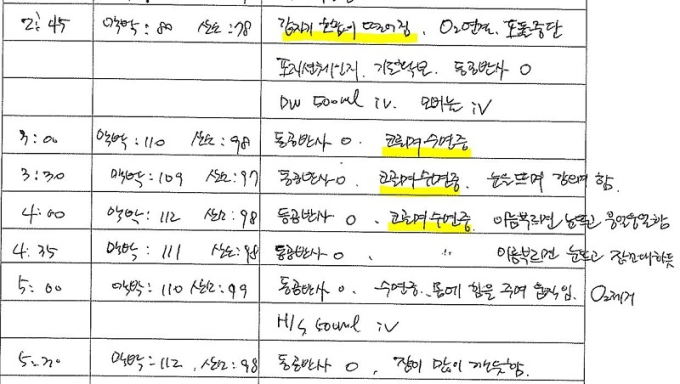 2:45 맥박:80 산소:78 갑자기 혈압이 떨어짐. O2연결. 포폴중단
포지션체인지. 기도확보. 동공반사 O
DW 500ml iv. iv
3:00 맥박:110 산소:98 동공반사 O. 코골며 수면중
3:30 맥박:109 산소:97 동공반사 O. 코골며 수면중. 눈을뜨며 함.
4:00 맥박:112 산소:98 동공반사 O. 코골며 수면중. 이름부르면 눈뜨고 웅얼웅얼함
4:35 맥박:111 산소:98 동공반사 O. " 이름부르면 눈뜨고 잠꼬대하듯
5:00 맥박:110 산소:99 동공반사 O. 수면중. 몸에 힘을 주며 움직임. O2제거
H/S 500ml iv
5:30 맥박:112. 산소:98 동공반사 O, 잠이 많이 깨듯함.